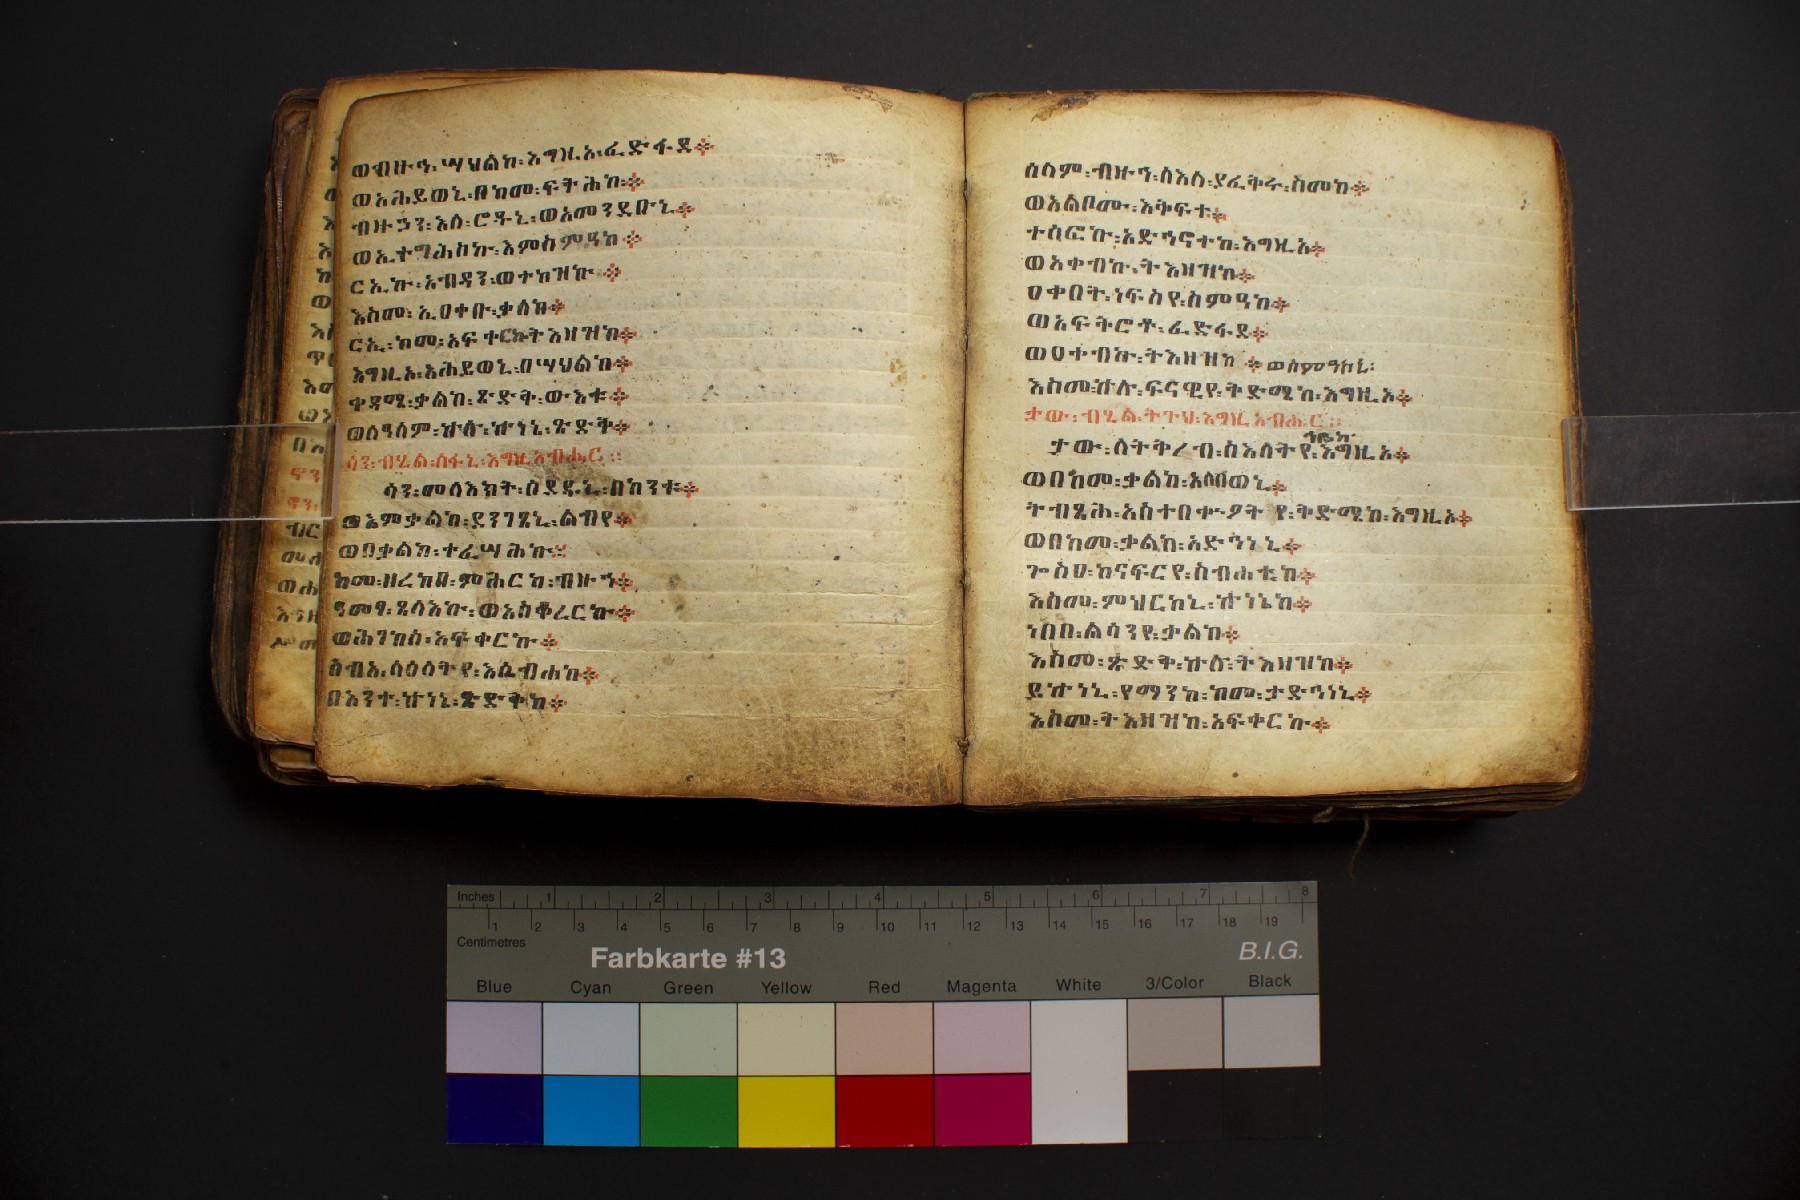 ወብዙኅ፡ሣህልከ፡እግዚኦ፡ፈድፋደ፨
ወአሕይወኒ፡በከመ፡ፍትሕከ፨
ብዙኃን፡እለ፡ሮዱኒ፡ወአመንደቡኒ፨
ወኢተግሕስኩ፡እምስምዓከ፨
ርኢኩ፡አብዳን፡ወተከዝኩ፨
እስመ፡ኢዐቀቡ፡ቃለከ፨
ርኢ፡ከመ፡አፍቀርኩ፡ትእዛዝከ፨
እግዚኦ፡አሕይወኒ፡በሣህልከ፨
ቀዳሜ፡ቃልከ፡ጽድቅ፡ውእቱ፨
ወለዓለም፡ኵሉ፡ኵነኔ፡ጽድቅ፨
ሳን፡ብሂል፡ስፋኒ፡እግዚአብሔር፡፡
ሳን፡መላእክት፡ሰደዱኒ፡በከንቱ፨
ወእምቃልከ፡ደንገፀኒ፡ልብየ፨
ወበቃልከ፡ተፈሣሕኩ፨
ከመ፡ዘረከበ፡ምሕርካ፡ብዙኅ፨
ዓመፃ፡ጸላእኩ፡ወአስቆረርኩ፨
ወሕገከሰ፡አፍቀርኩ፨
ስብዐ፡ለዕለትየ፡እሴብሐከ፨
በእንተ፡ኵነኔ፡ጽድቅከ፨
ሰላም፡ብዙኅ፡ለእለ፡ያፈቅሩ፡ስመከ፨
ወአልቦሙ፡እቅፍተ፨
ተሰፎኩ፡አድኅኖተከ፡እግዚኦ፨
ወአቀብኩ፡ትእዛዝከ፨
ዐቀበት፡ነፍስየ፡ስምዓከ፨
ወአፍትሮቶ፡ፈድፋደ፨
ወዐቀብኩ፡ትእዛዝከ፨ወስምዓከኒ፡
እስመ፡ኵሉ፡ፍናዊየ፡ቅድሜከ፡እግዚኦ፨
ታው፡ብሂል፡ትጉህ፡እግዚአብሔር፡፡
ኀቤከ
ታው፡ለትቅረብ፡ስእለትየ፡እግዚኦ፨
ወበከመ፡ቃልከ፡አለብወኒ፨
ትብጻሕ፡አስተብቍዖትየ፡ቅድሜከ፡እግዚኦ፨
ወበከመ፡ቃልከ፡አድኅነኒ፨
ጐስዐ፡ከናፍርየ፡ስብሐቲከ፨
እስመ፡ምህርከኒ፡ኵነኔከ፨
ነበበ፡ልሳንየ፡ቃልከ፨
እስመ፡ጽድቅ፡ኵሉ፡ትእዛዝከ፨
ይኵነኒ፡የማንከ፡ከመ፡ታድኅነኒ፨
እስመ፡ትእዛዝከ፡አፍቀርኩ፨
Inches 1 2 3 4 5 6 7 8
1 2 3 4 5 6 7 8 9 10 11 12 13 14 15 16 17 18 19
Centimetres
Farbkarte #13
B.I.G.
Blue Cyan Green Yellow Red Magenta White 3/Color Black